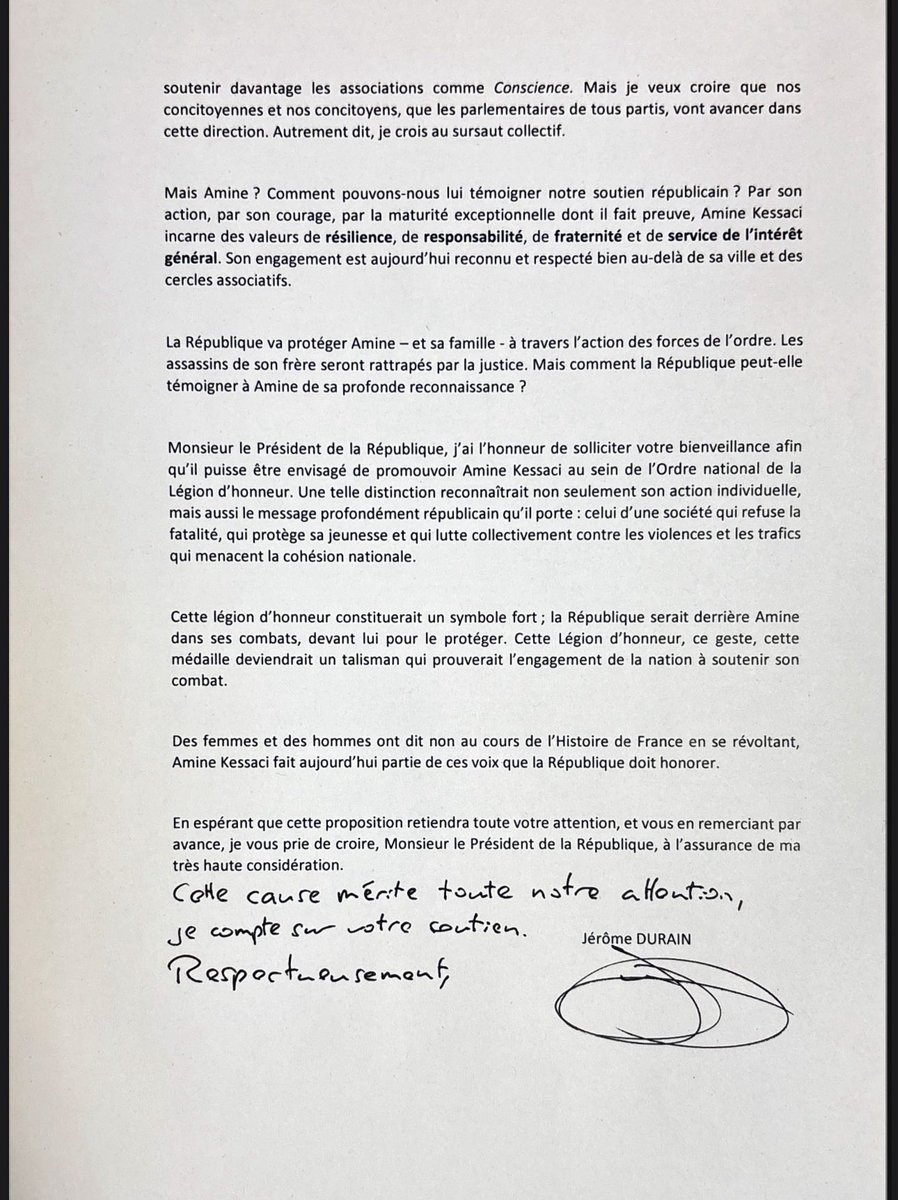 soutenir davantage les associations comme Conscience. Mais je veux croire que nos
concitoyennes et nos concitoyens, que les parlementaires de tous partis, vont avancer dans
cette direction. Autrement dit, je crois au sursaut collectif.
Mais Amine ? Comment pouvons-nous lui témoigner notre soutien républicain ? Par son
action, par son courage, par la maturité exceptionnelle dont il fait preuve, Amine Kessaci
incarne des valeurs de résilience, de responsabilité, de fraternité et de service de l’intérêt
général. Son engagement est aujourd’hui reconnu et respecté bien au-delà de sa ville et des
cercles associatifs.
La République va protéger Amine – et sa famille - à travers l’action des forces de l’ordre. Les
assassins de son frère seront rattrapés par la justice. Mais comment la République peut-elle
témoigner à Amine de sa profonde reconnaissance ?
Monsieur le Président de la République, j’ai l’honneur de solliciter votre bienveillance afin
qu’il puisse être envisagé de promouvoir Amine Kessaci au sein de l’Ordre national de la
Légion d’honneur. Une telle distinction reconnaîtrait non seulement son action individuelle,
mais aussi le message profondément républicain qu’il porte : celui d’une société qui refuse la
fatalité, qui protège sa jeunesse et qui lutte collectivement contre les violences et les trafics
qui menacent la cohésion nationale.
Cette légion d’honneur constituerait un symbole fort ; la République serait derrière Amine
dans ses combats, devant lui pour le protéger. Cette Légion d’honneur, ce geste, cette
médaille deviendrait un talisman qui prouverait l’engagement de la nation à soutenir son
combat.
Des femmes et des hommes ont dit non au cours de l’Histoire de France en se révoltant,
Amine Kessaci fait aujourd’hui partie de ces voix que la République doit honorer.
En espérant que cette proposition retiendra toute votre attention, et vous en remerciant par
avance, je vous prie de croire, Monsieur le Président de la République, à l’assurance de ma
très haute considération.
Cette cause mérite toute notre attention,
je compte sur votre soutien.
Jérôme DURAIN
Respectueusement,